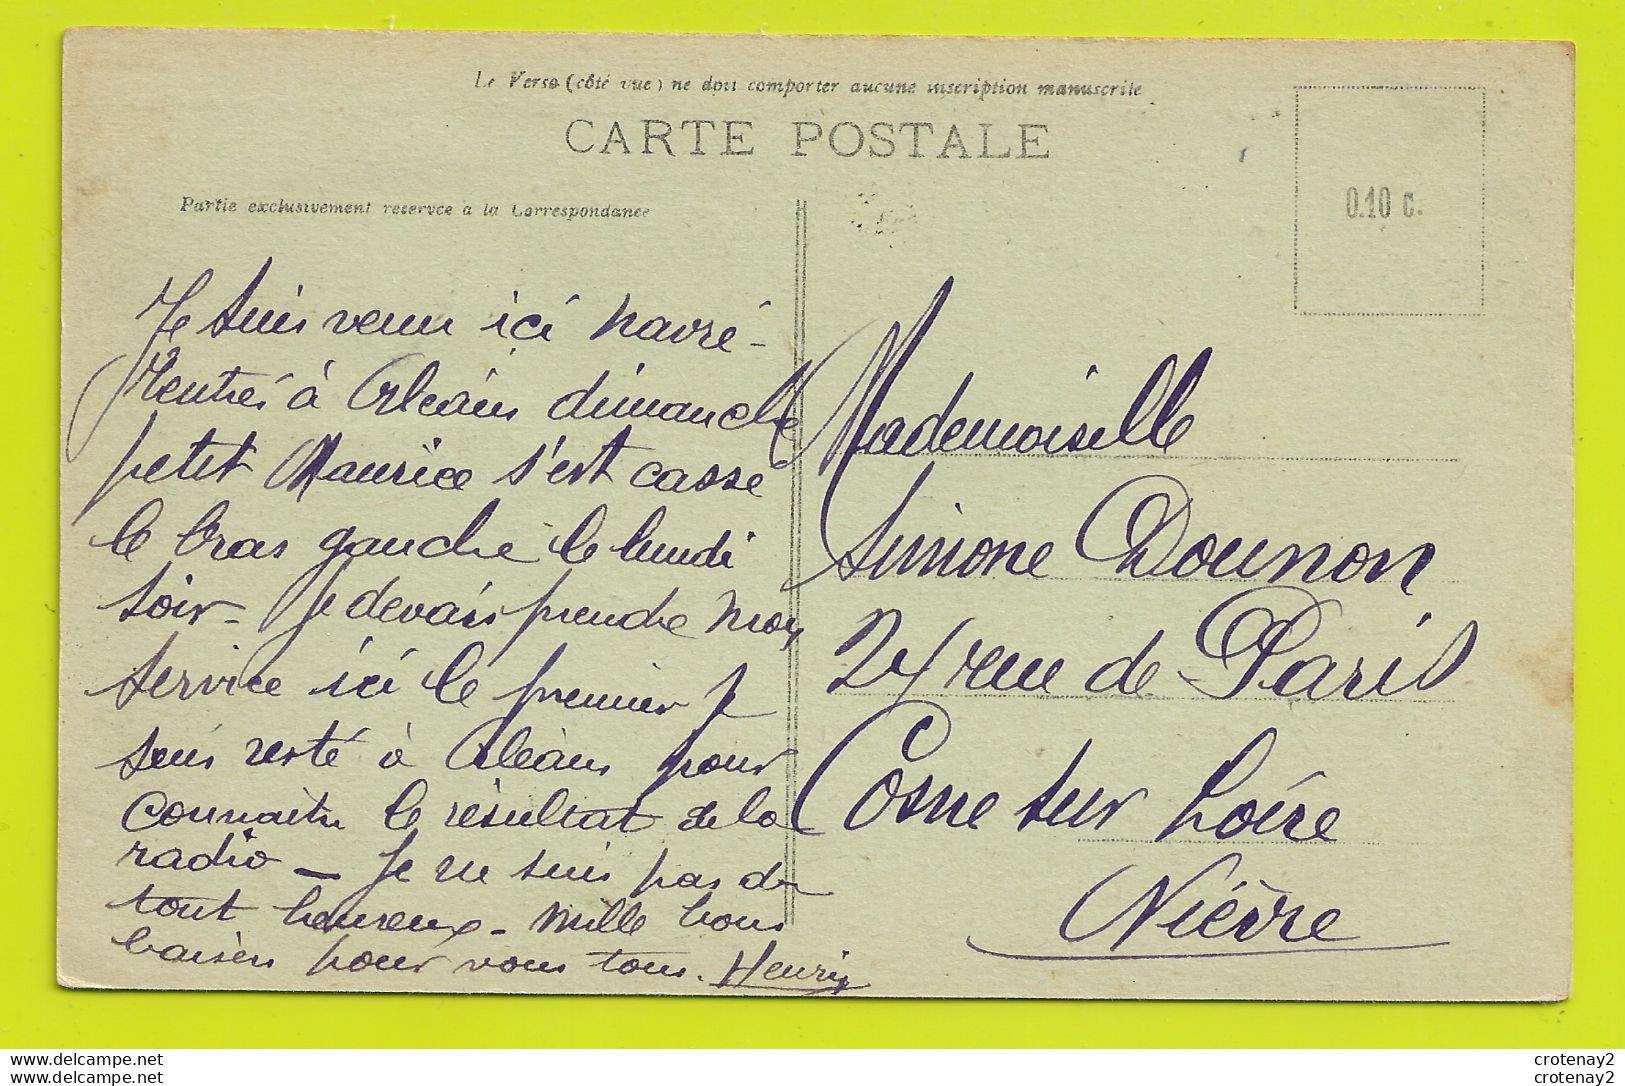 Le Verso (côté vue) ne doit comporter aucune inscription manuscrite
CARTE POSTALE
Partie exclusivement reservee a la Correspondance
0.10 c.
Je suis venu ici navré -
Rentrés à Orléans dimanche
petit Maurice s'est casse
le bras gauche le lundi
soir - Je devais prendre mon
service ici le premier je
suis resté à Orléans pour
connaitre le résultat de la
radio - Je ne suis pas du
tout heureux - Mille bons
baisers pour vous tous. Henri
Mademoiselle
Simone Dounon
24 rue de Paris
Cosne sur Loire
Nièvre
www.delcampe.net
www.delcampe.net
crotenay2
crotenay2